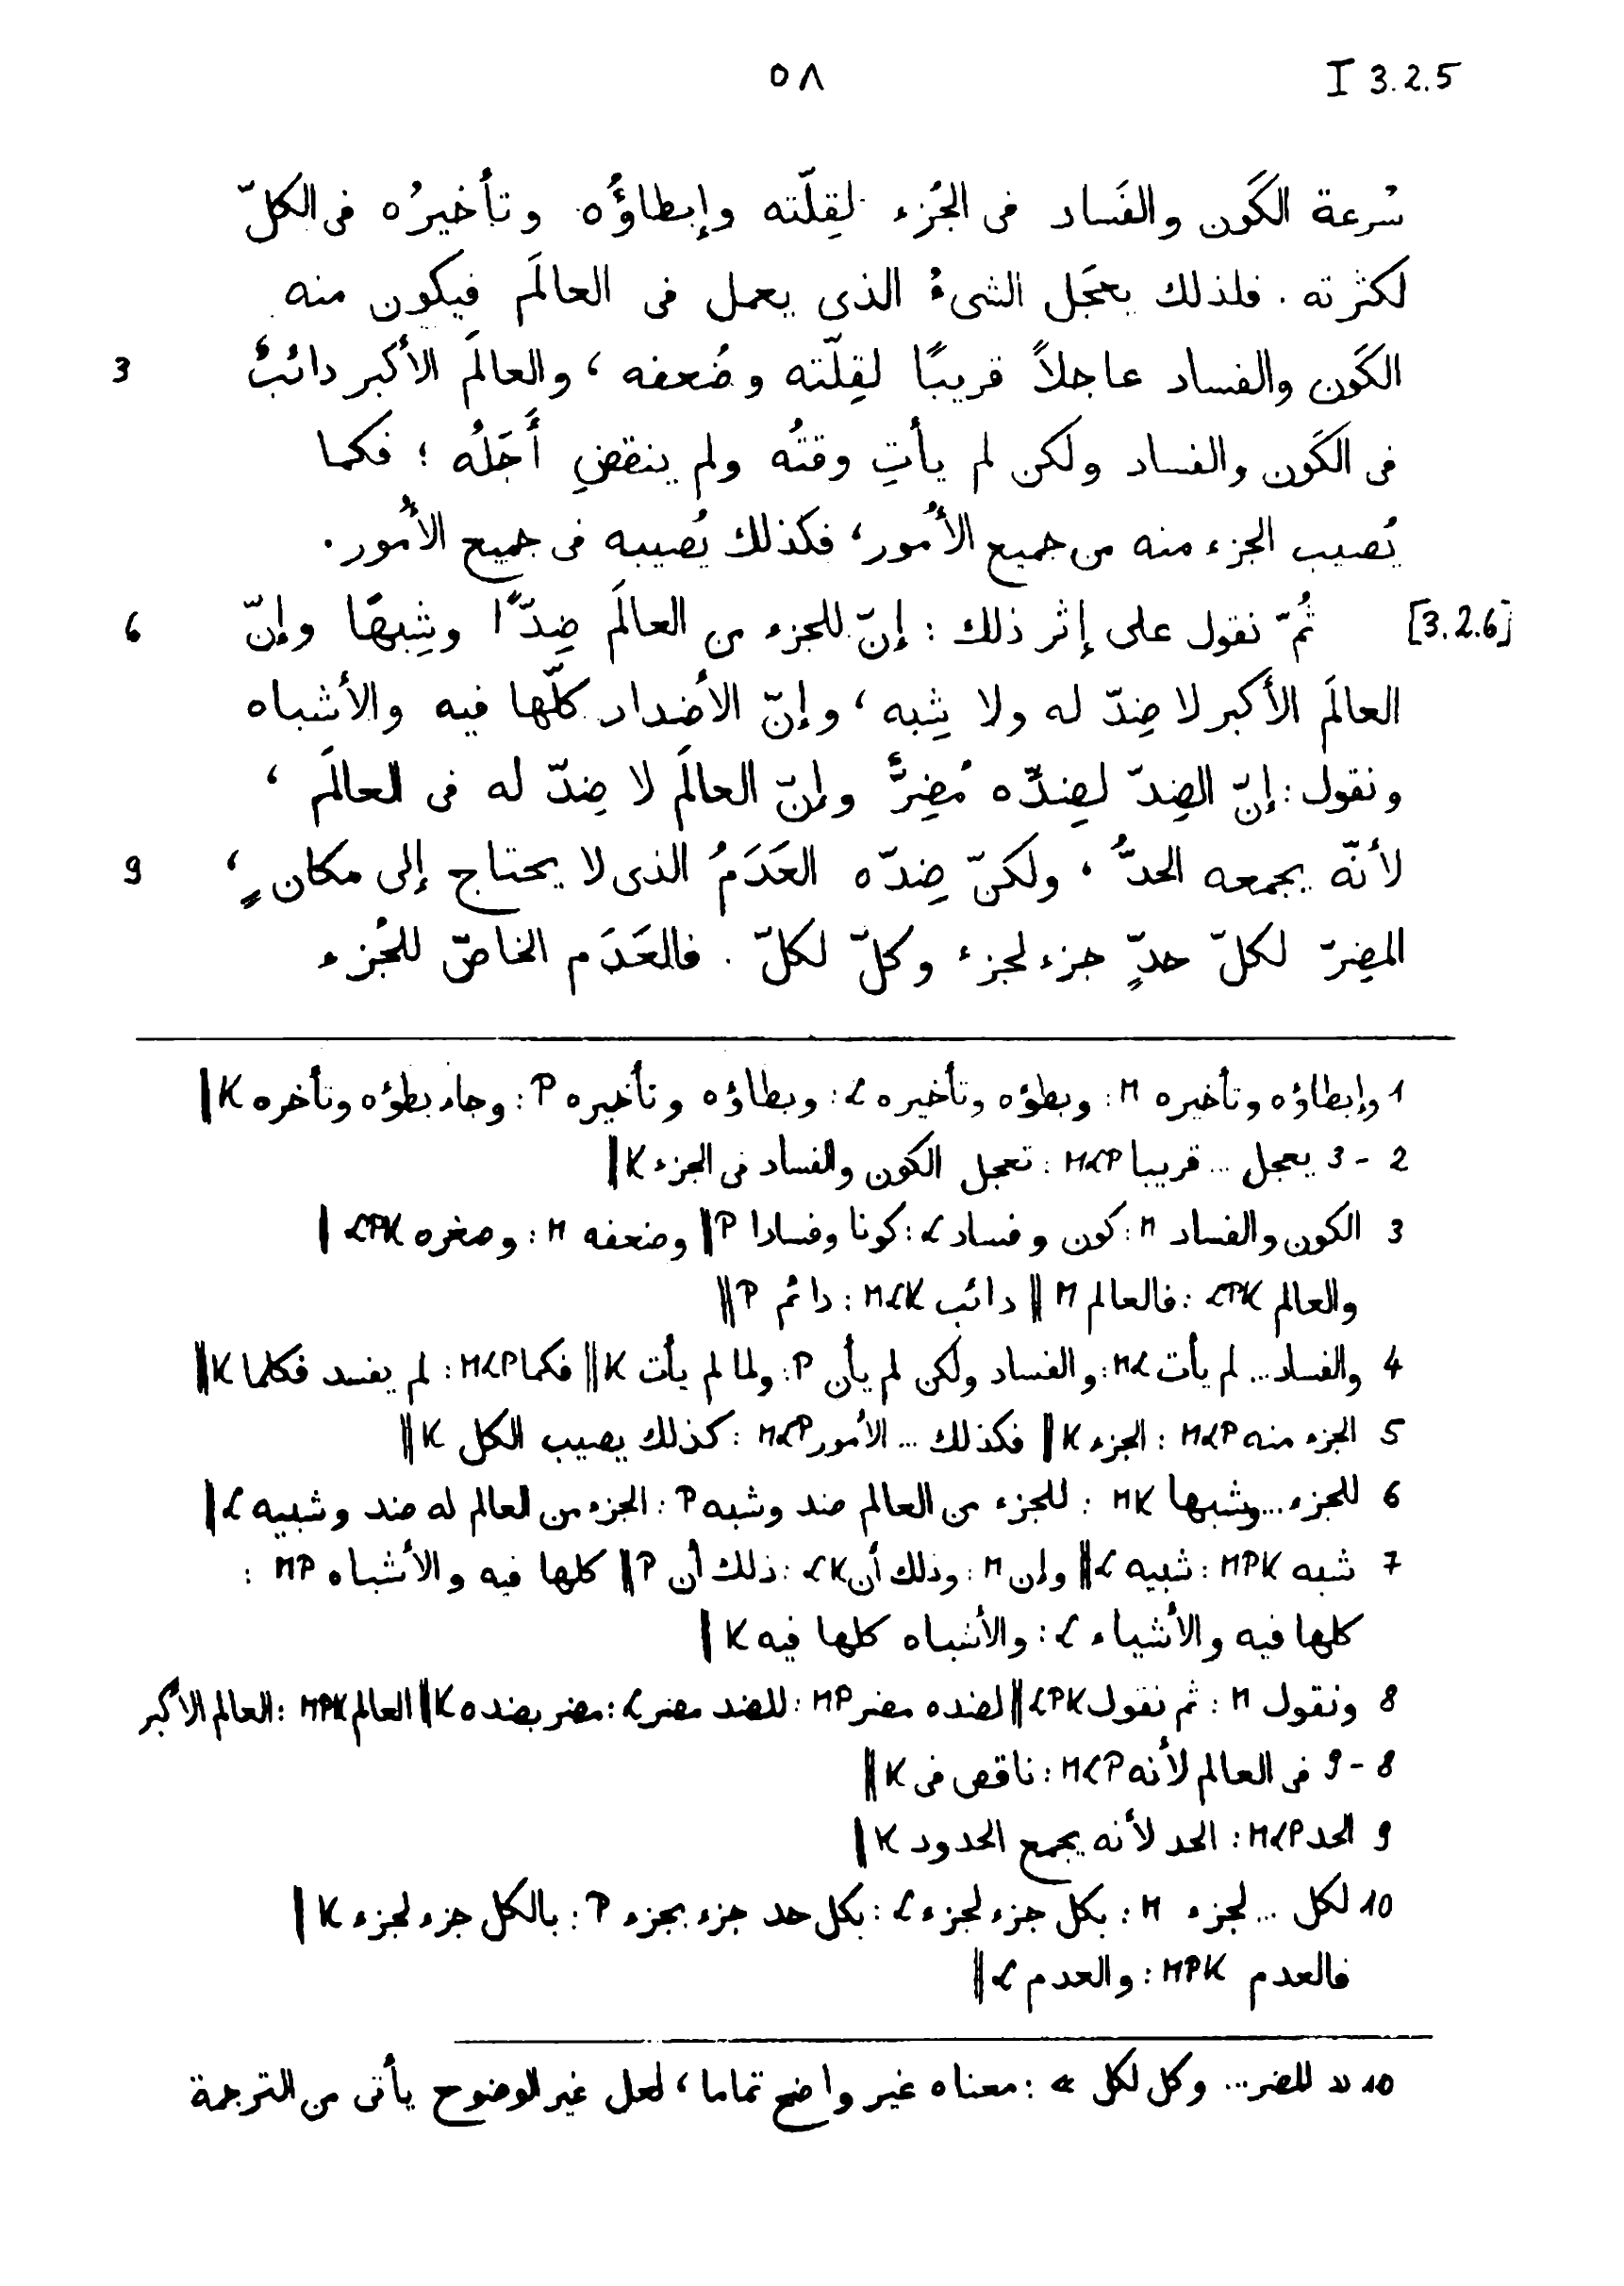 I 3.2.5
٥٨
سُرعة الكَون والفَساد فى الجُزء لقِلّته وإبطاؤُه وتأخيرُه فى الكلّ
لكثرته . فلذلك يعجَل الشىءُ الذى يعمل فى العالَم فيكون منه
الكَون والفساد عاجلاً قريبًا لقِلّته وضُعفه ، والعالَم الأكبر دائبٌ 3
فى الكَون والفساد ولكن لم يأتِ وقتُه ولم ينقضِ أَجَلُه ؛ فكما
يُصيب الجزء منه من جميع الأُمور ، فكذلك يُصيبه فى جميع الأُمور .
[3.2.6] ثُمّ نقول على إثر ذلك : إنّ للجزء من العالَم ضِدًّا وشِبهًا وإنّ 6
العالَم الأكبر لا ضِدّ له ولا شِبه ، وإنّ الأضداد كلّها فيه والأشباه
ونقول : إنّ الضِدّ لضِدّه مُضِرٌّ وإنّ العالَم لا ضِدّ له فى العالَم ،
لأنّه يجمعه الحدُّ ، ولكنّ ضِدّه العَدَمُ الذى لا يحتاج إلى مكانٍ ، 9
المضِرّ لكلّ حدٍّ جزء لجزء وكلّ لكلّ . فالعَدَم الخاصّ للجُزء
1 وإبطاؤه وتأخيره M : وبطؤه وتأخيره L : وبطاؤه وتأخيره P : وجاء بطؤه وتأخره K ‖
2 - 3 يعجل ... قريبا MLP : تعجل الكون والفساد فى الجزء K ‖
3 الكون والفساد M : كون وفساد L : كونا وفسادا P ‖ وضعفه M : وصغره LPK ‖
والعالم LPK : فالعالم M ‖ دائب MLK : دائم P ‖
4 والفساد ... لم يأت ML : والفساد ولكن لم يأن P : ولما لم يأت K ‖ فكما MLP : لم يفسد فكلما K ‖
5 الجزء منه MLP : الجزء K ‖ فكذلك ... الأمور MLP : كذلك يصيب الكل K ‖
6 للجزء ... وشبها MK : للجزء من العالم ضد وشبه P : الجزء من العالم له ضد وشبيه L ‖
7 شبه MPK : شبيه L ‖ وإن M : وذلك أن LK : ذلك أن P ‖ كلها فيه والأشباه MP :
كلها فيه والأشياء L : والأشباه كلها فيه K ‖
8 ونقول M : ثم نقول LPK ‖ لضده مضر MP : للضد مضر L : مضر بضده K ‖ العالم MPK : العالم الأكبر
8 - 9 فى العالم لأنه MLP : ناقص فى K ‖
9 الحد MLP : الحد لأنه يجمع الحدود K ‖
10 لكل ... لجزء M : بكل جزء لجزء L : بكل حد جزء بجزء P : بالكل جزء لجزء K ‖
فالعدم MPK : والعدم L ‖
10 « للضر ... وكل لكل » : معناه غير واضح تماما ، لعل غير الوضوح يأتى من الترجمة